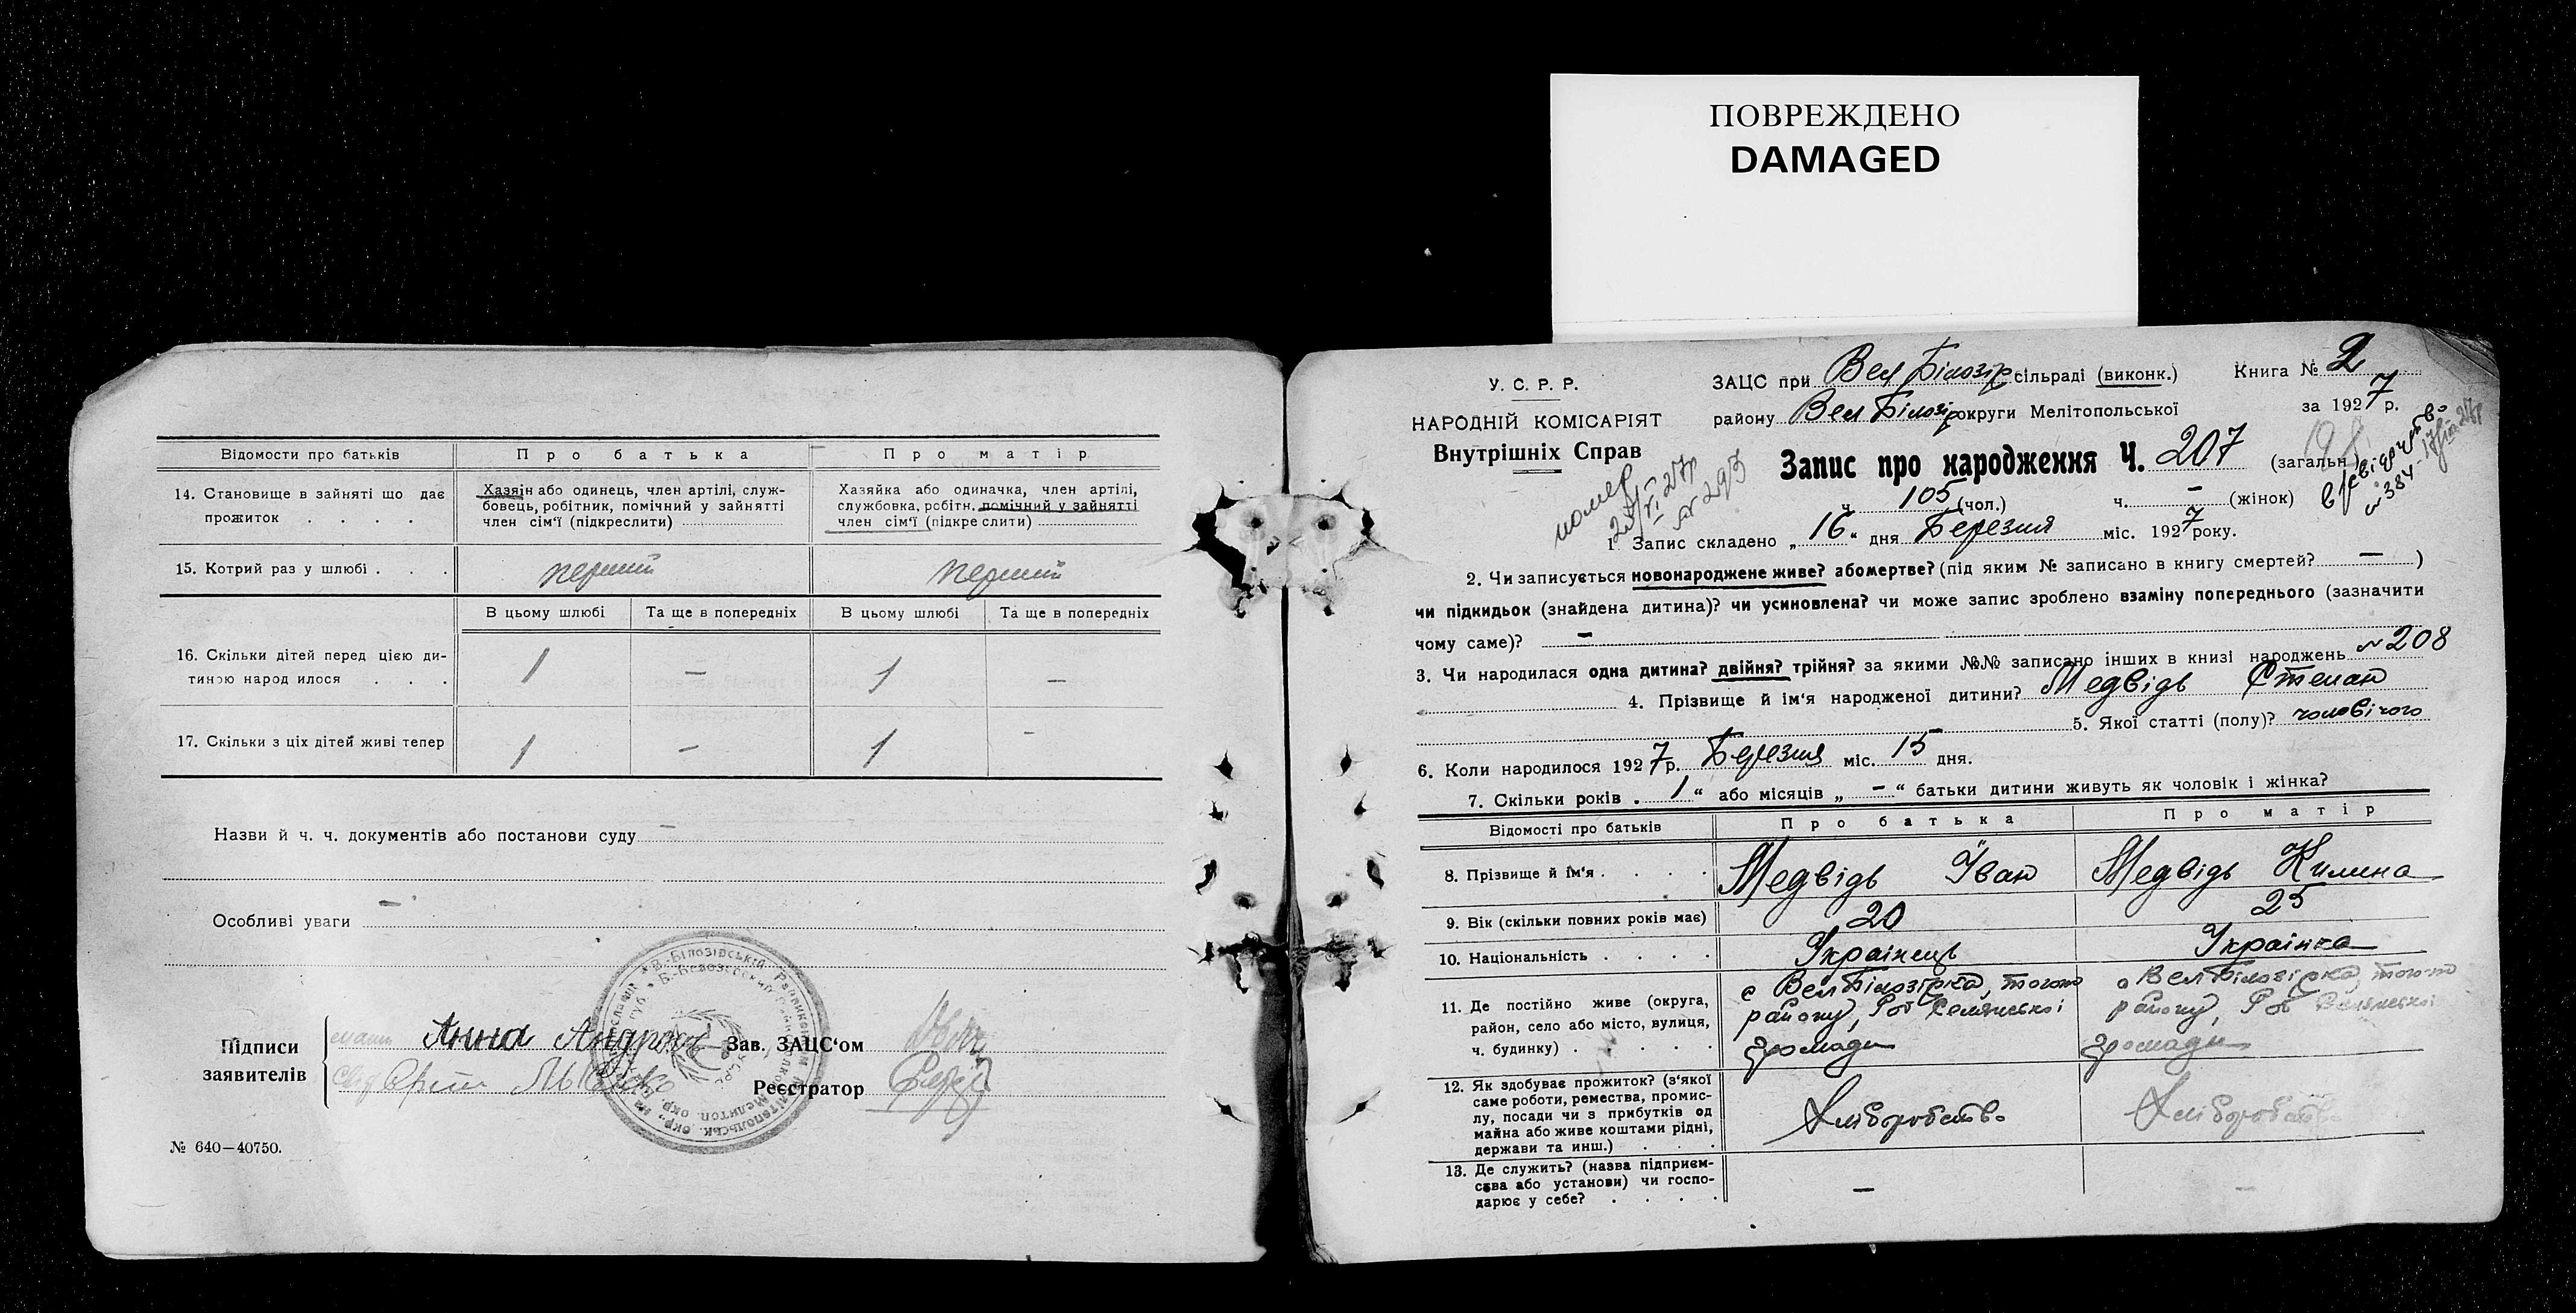 ПОВРЕЖДЕНО
DAMAGED
Відомости про батьків
Про батька
Про матір
14. Становище в зайняті що дає
прожиток . . . .
Хазяїн або одинець, член артілі, служ-
бовець, робітник, помічний у зайнятті
член сім'ї (підкреслити)
Хазяйка або одиначка, член артілі,
службовка, робітн. помічний у зайнятті
член сім'ї (підкреслити)
15. Котрий раз у шлюбі . . .
перший
перший
В цьому шлюбі
Та ще в попередніх
В цьому шлюбі
Та ще в попередніх
16. Скільки дітей перед цією ди-
тиною народилося . . .
1 — 1 —
17. Скільки з ціх дітей живі тепер
1 — 1 -
Назви й ч. ч. документів або постанови суду —
Особливі уваги —
Підписи
заявителів
Анна
Зав. ЗАЦС'ом
Реєстратор
№ 640—40750.
У. С. Р. Р.
НАРОДНІЙ КОМІСАРІЯТ
Внутрішніх Справ
ЗАЦС при Вел Білозір сільраді (виконк.)
Книга № 2
району Вел Білозір округи Мелітопольської
за 1927 р.
Запис про народження Ч. 207 (загальн.)
ч. 105 (чол.) ч. — (жінок)
помер
№ 293
№ 384
1 Запис складено „16" дня Березня міс. 1927 року.
2. Чи записується новонароджене живе? або мертве? (під яким № записано в книгу смертей? — )
чи підкидьок (знайдена дитина)? чи усиновлена? чи може запис зроблено взаміну попереднього (зазначити
чому саме)? —
3. Чи народилася одна дитина? двійня? трійня? за якими №№ записано інших в книзі народжень № 208
4. Прізвище й ім'я народженої дитини? Медвідь Степан
5. Якої статті (полу)? чоловічого
6. Коли народилося 1927 р. Березня міс. 15 дня.
7. Скільки років „1" або місяців „—" батьки дитини живуть як чоловік і жінка?
Відомості про батьків
Про батька
Про матір
8. Прізвище й ім'я . . . .
Медвідь Іван
Медвідь Килина
9. Вік (скільки повних років має)
20
25
10. Національність . . . .
Українець
Українка
11. Де постійно живе (округа,
район, село або місто, вулиця,
ч. будинку) . . . . .
с Вел Білозірка, того
району, Селянської
громади
с Вел Білозірка, того
району, Селянської
громади
12. Як здобуває прожиток? (з'якої
саме роботи, ремества, промис-
лу, посади чи з прибутків од
майна або живе коштами рідні,
держави та инш.) . . .
Хліборобство
Хліборобство
13. Де служить? (назва підприєм-
сава або установи) чи госпо-
дарює у себе? . . . .
— —